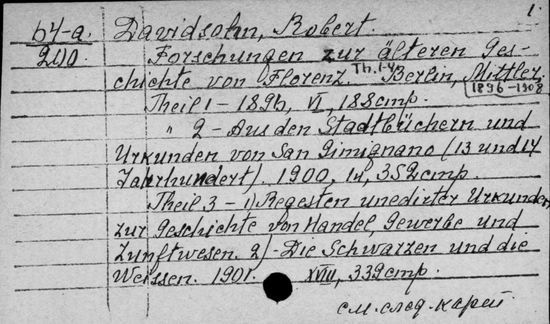 1.
64-a.
200
Davidsohn, Robert.
Forschungen zur älteren Ges-
chichte von Florenz. Th. 1-4. Berlin, Mittler.
1896-1908
Theil 1 - 1896, VI, 188 стр.
" 2 - Aus den Stadtbüchern und
Urkunden von San Gimignano (13 und 14
Jahrhundert). 1900, 352 стр.
Theil 3 - 1) Regesten unedirter Urkunden
zur Geschichte von Handel, Gewerbe und
Zunftwesen. 2) - Die Schwarzen und die
Weissen. 1901. XVIII, 339 стр.
см. след. карт